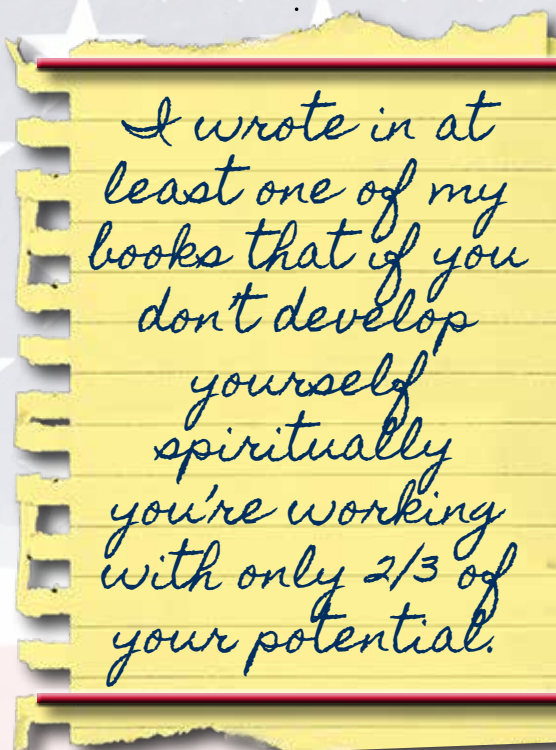 I wrote in at
least one of my
books that if you
don't develop
yourself
spiritually
you're working
with only 2/3 of
your potential.